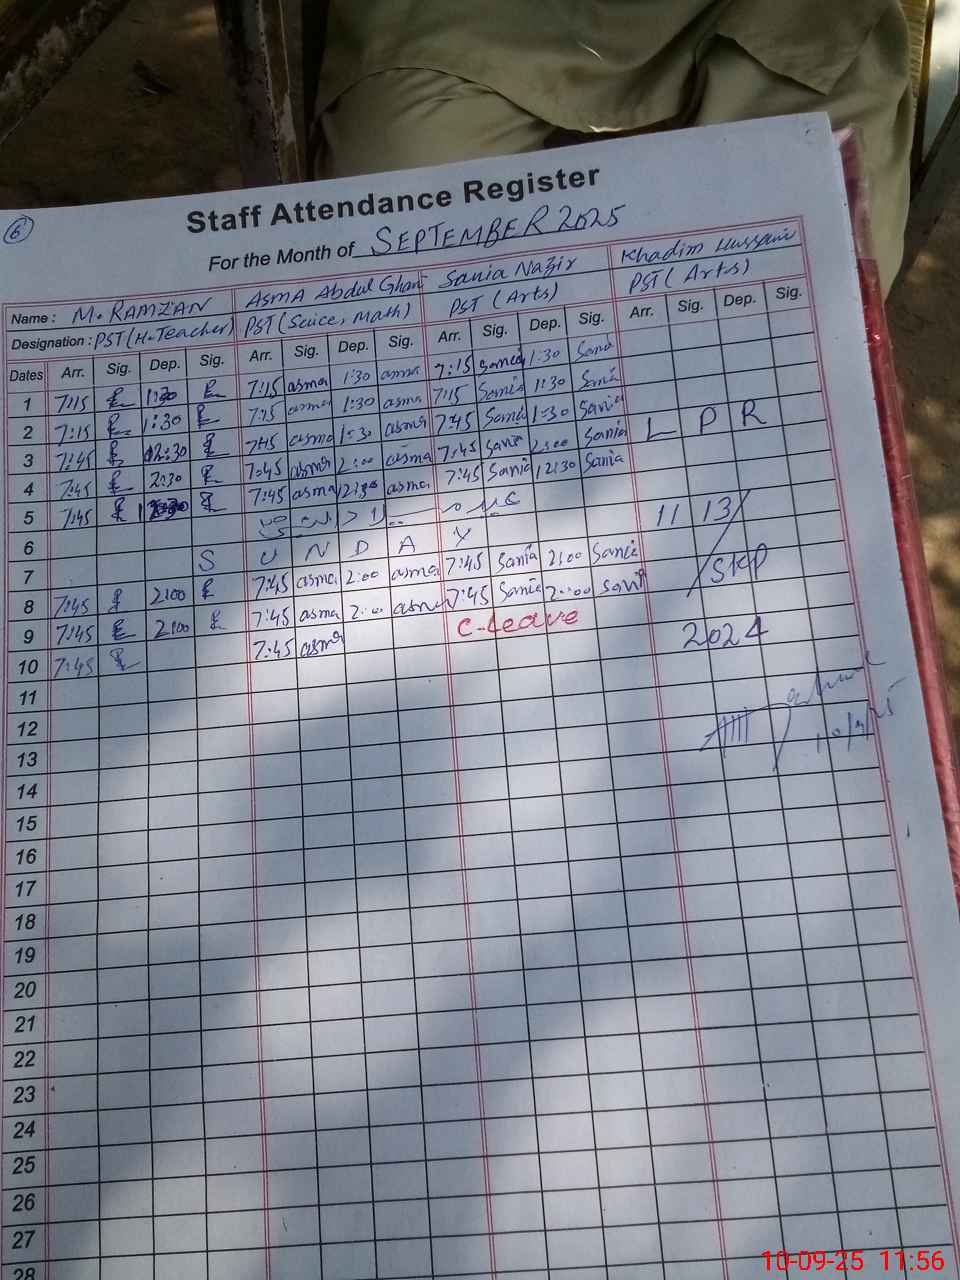 6
Staff Attendance Register
For the Month of SEPTEMBER 2025
Name : M. RAMZAN Asma Abdul Ghani Sania Nazir Khadim Hussain
Designation : PST (H.Teacher) PST (Scice, Math) PST (Arts) PST (Arts)
Dates Arr. Sig. Dep. Sig. Arr. Sig. Dep. Sig. Arr. Sig. Dep. Sig. Arr. Sig. Dep. Sig.
1 7:15 1:30 7:15 asma 1:30 asma 7:15 Sania 1:30 Sania
2 7:15 1:30 7:15 asma 1:30 asma 7:15 Sania 1:30 Sania
3 7:45 12:30 7:45 asma 1:30 asma 7:45 Sania 1:30 Sania L P R
4 7:45 2:30 7:45 asma 2:00 asma 7:45 Sania 2:00 Sania
5 7:45 7:45 asma 12:30 asma 7:45 Sania 12:30 Sania
6 11 13/
7 S U N D A Y
8 7:45 2:00 7:45 asma 2:00 asma 7:45 Sania 2:00 Sania / SKP
9 7:45 2:00 7:45 asma 2:00 asma 7:45 Sania 2:00 Sania
10 7:45 7:45 asma C-Leave 2024
11
12
13 10/9/25
14
15
16
17
18
19
20
21
22
23
24
25
26
27
28
10-09-25 11:56